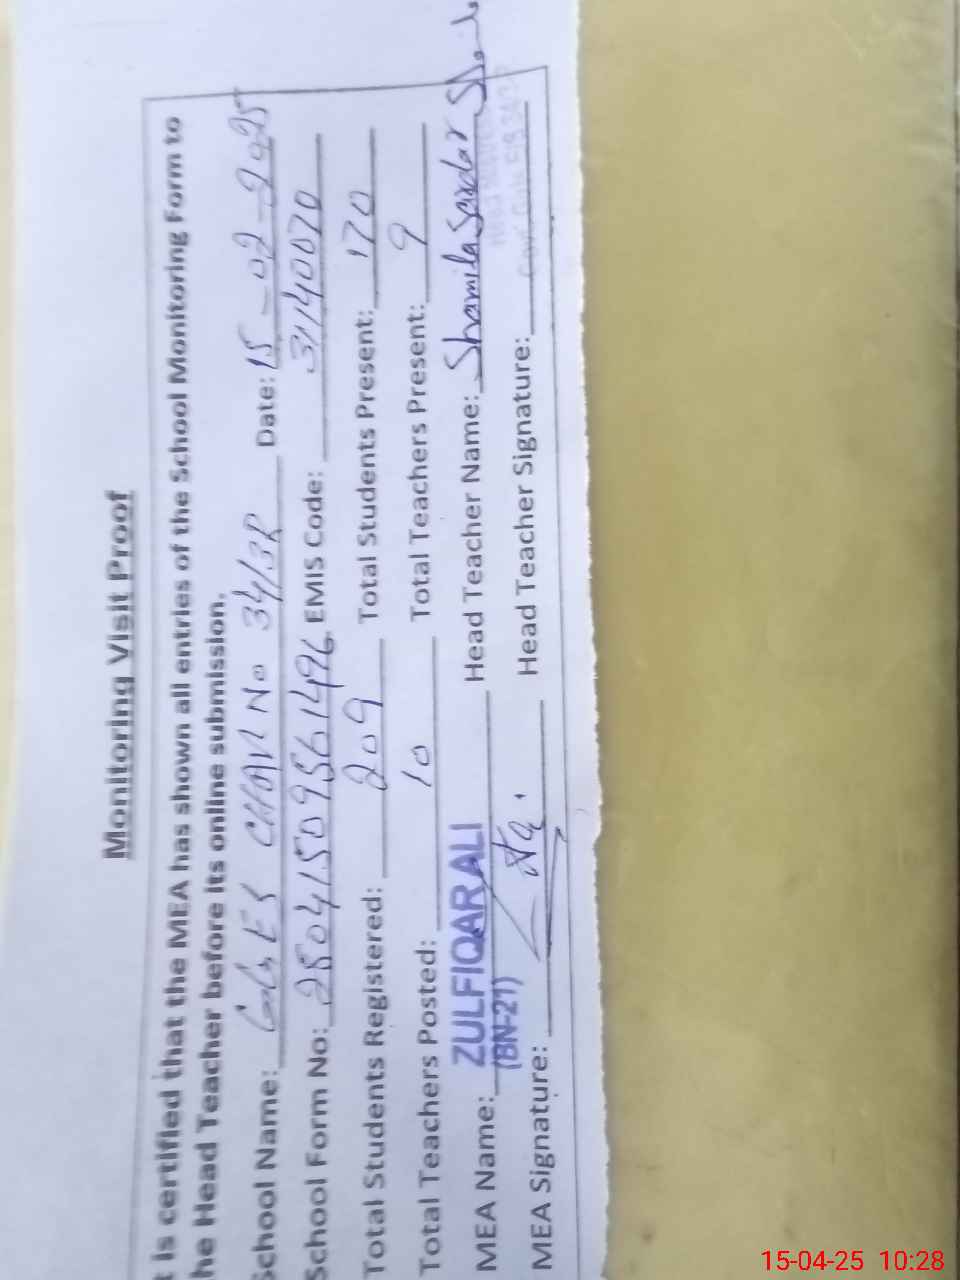 Monitoring Visit Proof
t is certified that the MEA has shown all entries of the School Monitoring Form to
he Head Teacher before its online submission.
School Name: GGES CHAK No 34/3R Date: 15-02-2025
School Form No: 25041509561496 EMIS Code: 31140070
Total Students Registered: 209 Total Students Present: 170
Total Teachers Posted: 10 Total Teachers Present: 9
MEA Name: ZULFIQAR ALI (BN-21) Head Teacher Name: Shamila Sardar
MEA Signature: Head Teacher Signature:
15-04-25 10:28